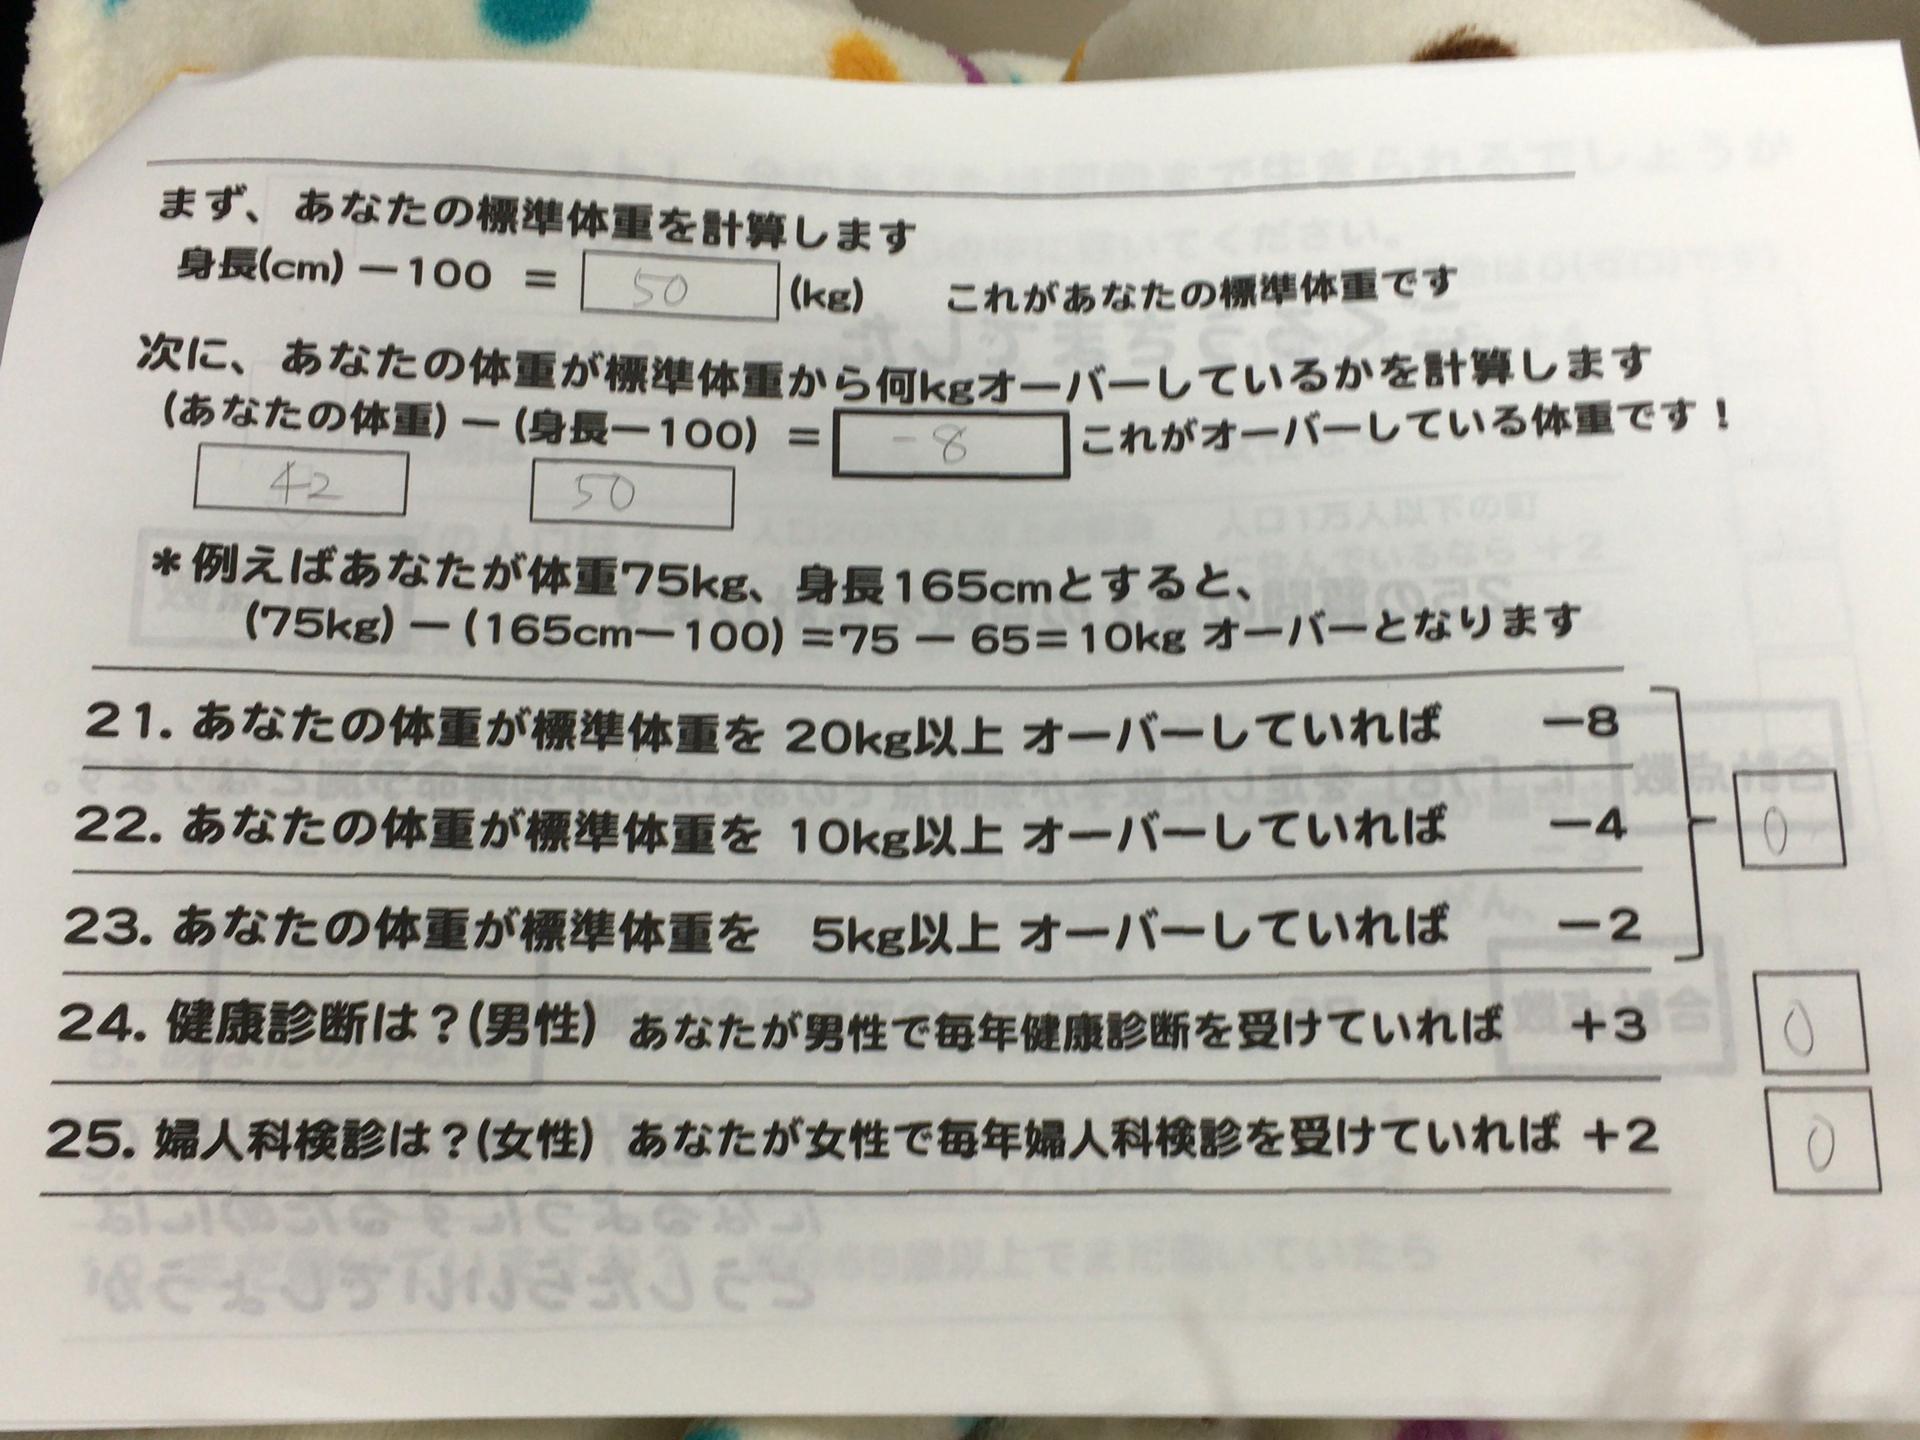 まず、あなたの標準体重を計算します
身長(cm) －100 ＝ 50 (kg) これがあなたの標準体重です
次に、あなたの体重が標準体重から何kgオーバーしているかを計算します
(あなたの体重) － (身長－100) ＝ -8 これがオーバーしている体重です！
42 50
＊例えばあなたが体重75kg、身長165cmとすると、
(75kg) － (165cm－100) ＝75 － 65＝10kg オーバーとなります
21. あなたの体重が標準体重を 20kg以上 オーバーしていれば －8
22. あなたの体重が標準体重を 10kg以上 オーバーしていれば －4
0
23. あなたの体重が標準体重を 5kg以上 オーバーしていれば －2
24. 健康診断は？(男性) あなたが男性で毎年健康診断を受けていれば ＋3 0
25. 婦人科検診は？(女性) あなたが女性で毎年婦人科検診を受けていれば ＋2 0